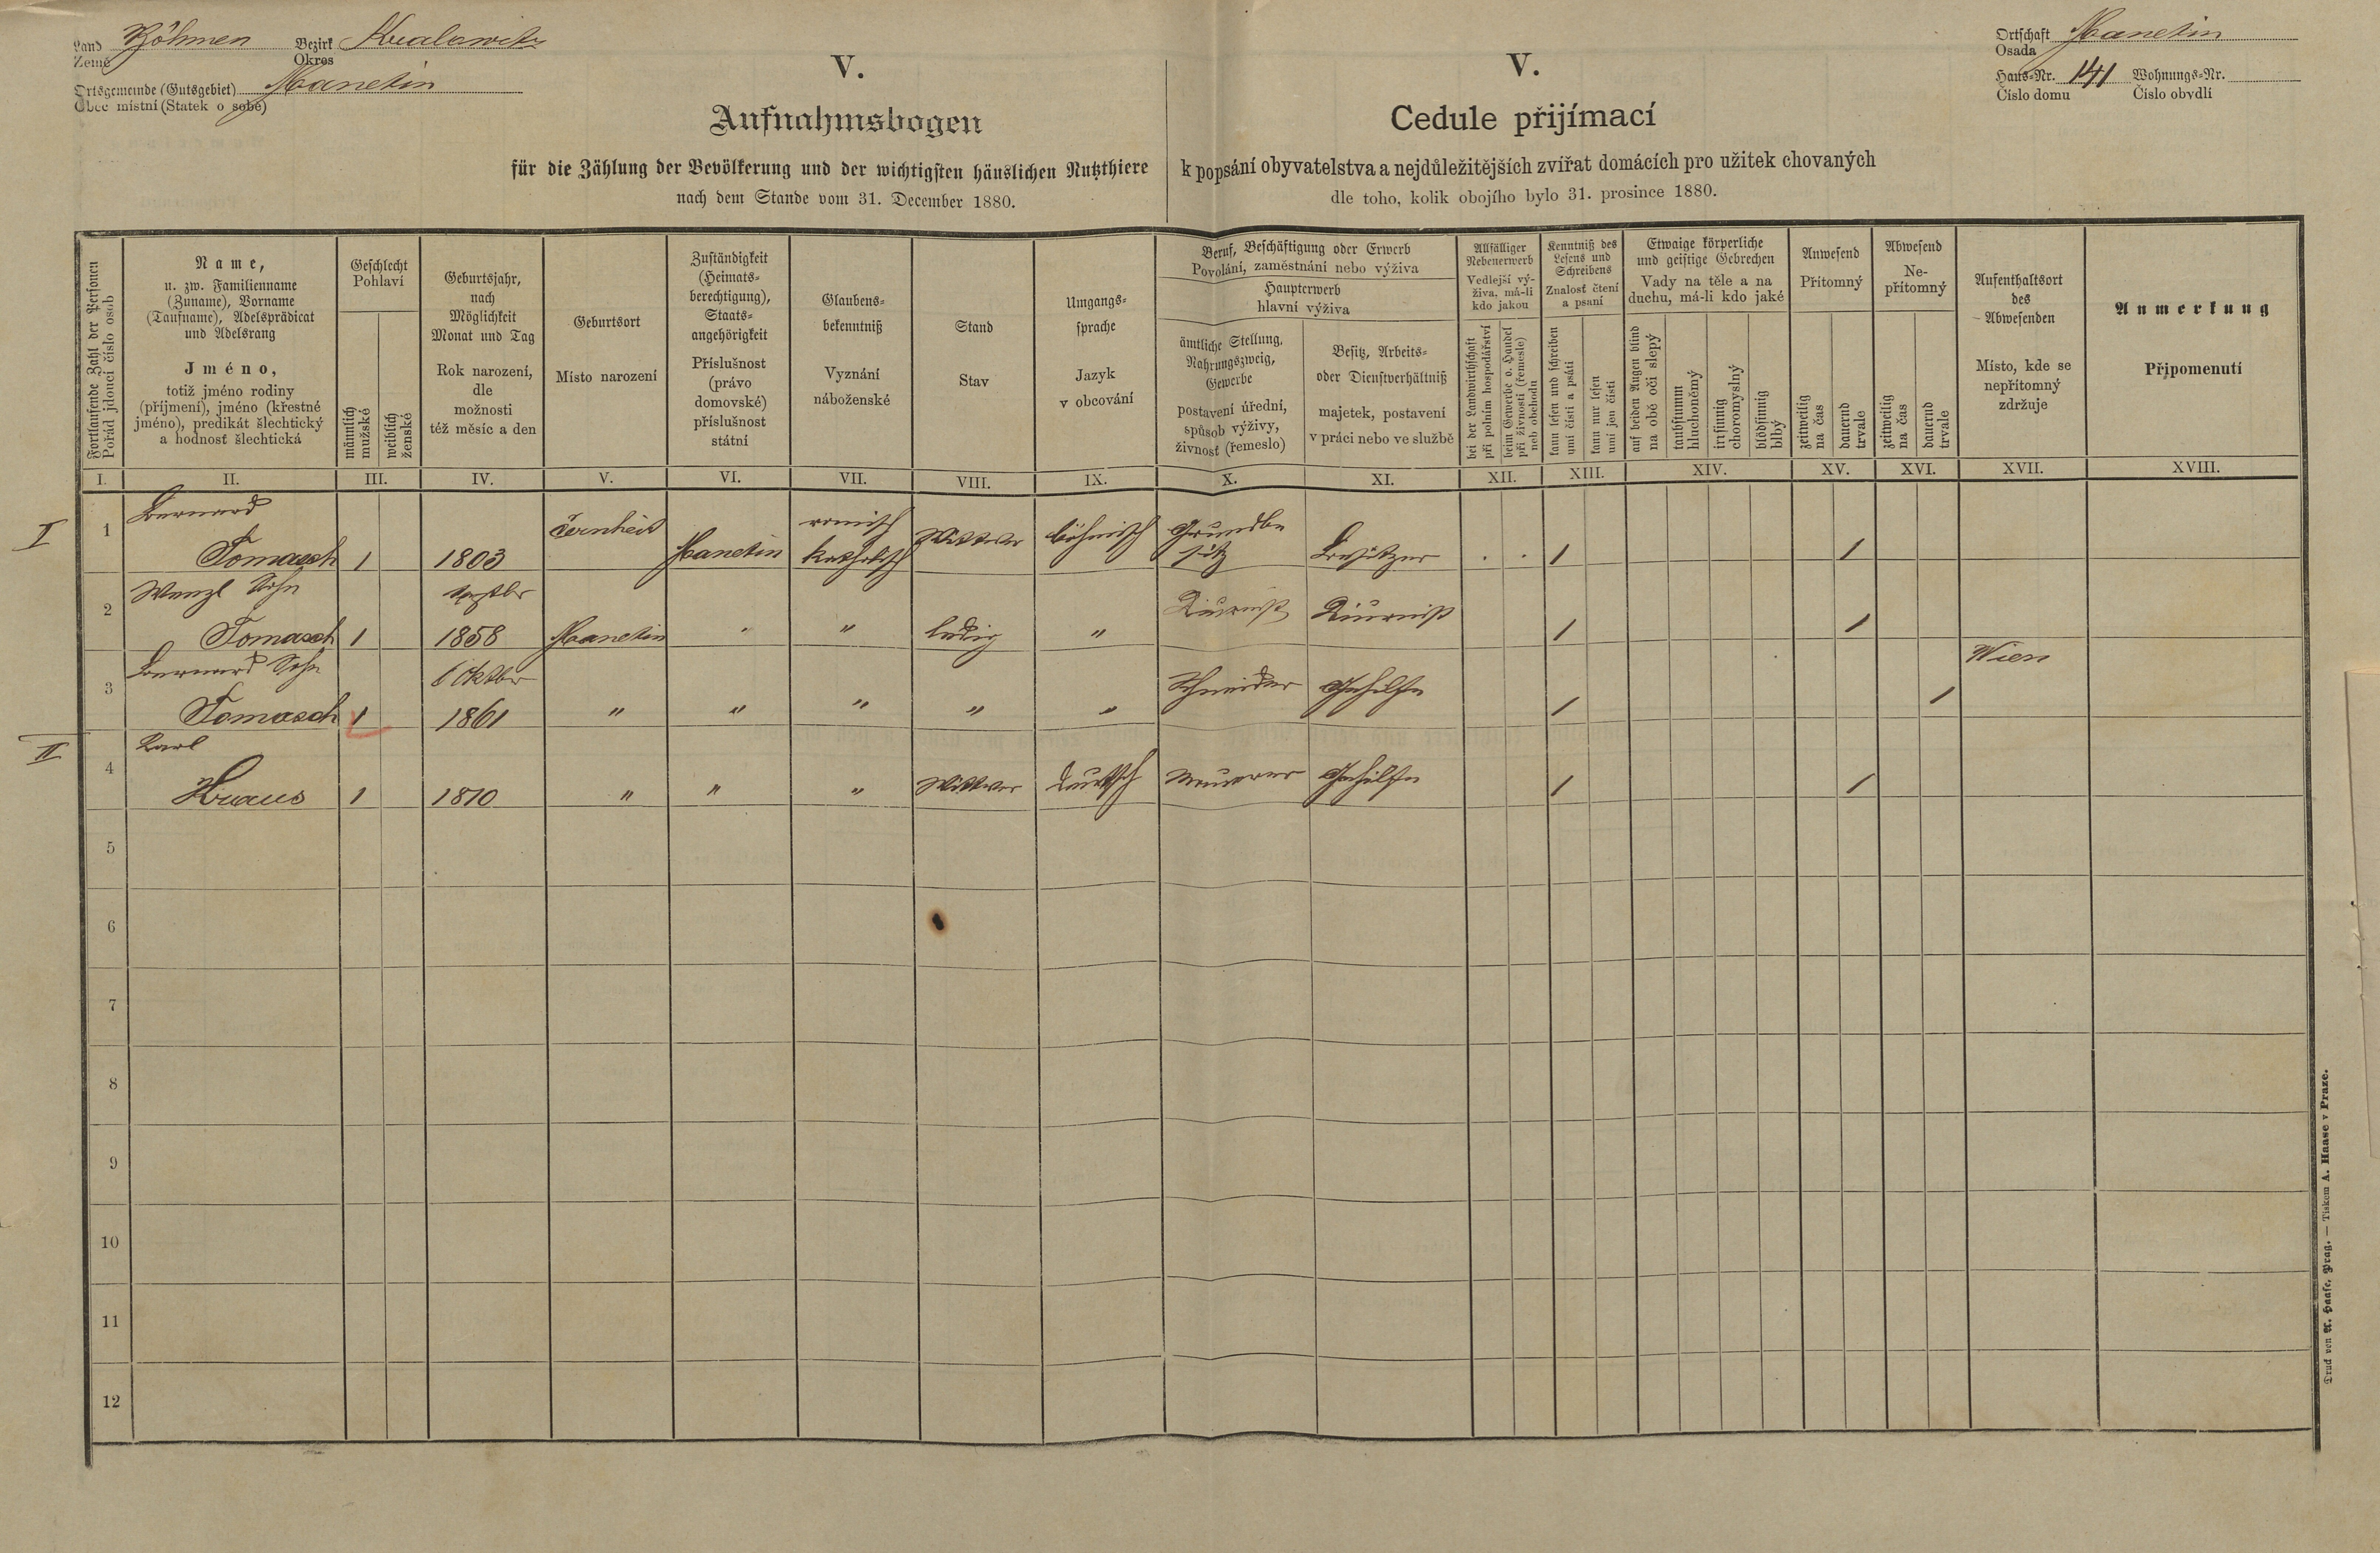 Land Böhmen Bezirk Kralowitz
Země Okres
Ortsgemeinde (Gutsgebiet) Manetin
Obec místní (Statek o sobě)
Ortschaft Manetin
Osada
Haus-Nr. 141 Wohnungs-Nr.
Číslo domu Číslo obydlí
V.
Aufnahmsbogen
für die Zählung der Bevölkerung und der wichtigsten häuslichen Nutzthiere
nach dem Stande vom 31. December 1880.
V.
Cedule přijímací
k popsání obyvatelstva a nejdůležitějších zvířat domácích pro užitek chovaných
dle toho, kolik obojího bylo 31. prosince 1880.
Fortlaufende Zahl der Personen
Pořád jdoucí číslo osob
Name,
u. zw. Familienname
(Zuname), Vorname
(Taufname), Adelsprädicat
und Adelsrang
Jméno,
totiž jméno rodiny
(příjmení), jméno (křestné
jméno), predikát šlechtický
a hodnosť šlechtická
Geschlecht
Pohlaví
männlich
mužské
weiblich
ženské
Geburtsjahr,
nach
Möglichkeit
Monat und Tag
Rok narození,
dle
možnosti
též měsíc a den
Geburtsort
Místo narození
Zuständigkeit
(Heimats-
berechtigung),
Staats-
angehörigkeit
Příslušnost
(právo
domovské)
příslušnost
státní
Glaubens-
bekenntniß
Vyznání
náboženské
Stand
Stav
Umgangs-
sprache
Jazyk
v obcování
Beruf, Beschäftigung oder Erwerb
Povolání, zaměstnání nebo výživa
Haupterwerb
hlavní výživa
ämtliche Stellung,
Nahrungszweig,
Gewerbe
postavení úřední,
spůsob výživy,
živnosť (řemeslo)
Besitz, Arbeits-
oder Dienstverhältniß
majetek, postavení
v práci nebo ve službě
Allfälliger
Nebenerwerb
Vedlejší vý-
živa, má-li
kdo jakou
bei der Landwirthschaft
při polním hospodářství
beim Gewerbe o. Handel
při živnosti (řemesle)
neb obchodu
Kenntniß des
Lesens und
Schreibens
Znalosť čtení
a psaní
kann lesen und schreiben
umí čísti a psáti
kann nur lesen
umí jen čísti
Etwaige körperliche
und geistige Gebrechen
Vady na těle a na
duchu, má-li kdo jaké
auf beiden Augen blind
na obě oči slepý
taubstumm
hluchoněmý
irrsinnig
choromyslný
blödsinnig
blbý
Anwesend
Přítomný
zeitweilig
na čas
dauernd
trvale
Abwesend
Ne-
přítomný
zeitweilig
na čas
dauernd
trvale
Aufenthaltsort
des
Abwesenden
Místo, kde se
nepřítomný
zdržuje
Anmerkung
Připomenutí
I. II. III. IV. V. VI. VII. VIII. IX. X. XI. XII. XIII. XIV. XV. XVI. XVII. XVIII.
I
1 Bernard römisch Grundbe
Tomasch 1 1803 Manetin katholisch Wittwer böhmisch sitz Besitzer . . 1 1
2 Wenzl Sohn
Tomasch 1 1858 Manetin " " ledig " Diurnist Diurnist 1 1
3 Bernard Sohn Oktber Wien
Tomasch 1 1861 " " " " " Schneider Gehilfe 1 1
II
4 Karl
Kraus 1 1810 " " " Wittwer deutsch Maurer Gehilfe 1 1
5
6
7
8
9
10
11
12
Druck von A. Haase, Prag. — Tiskem A. Haase v Praze.